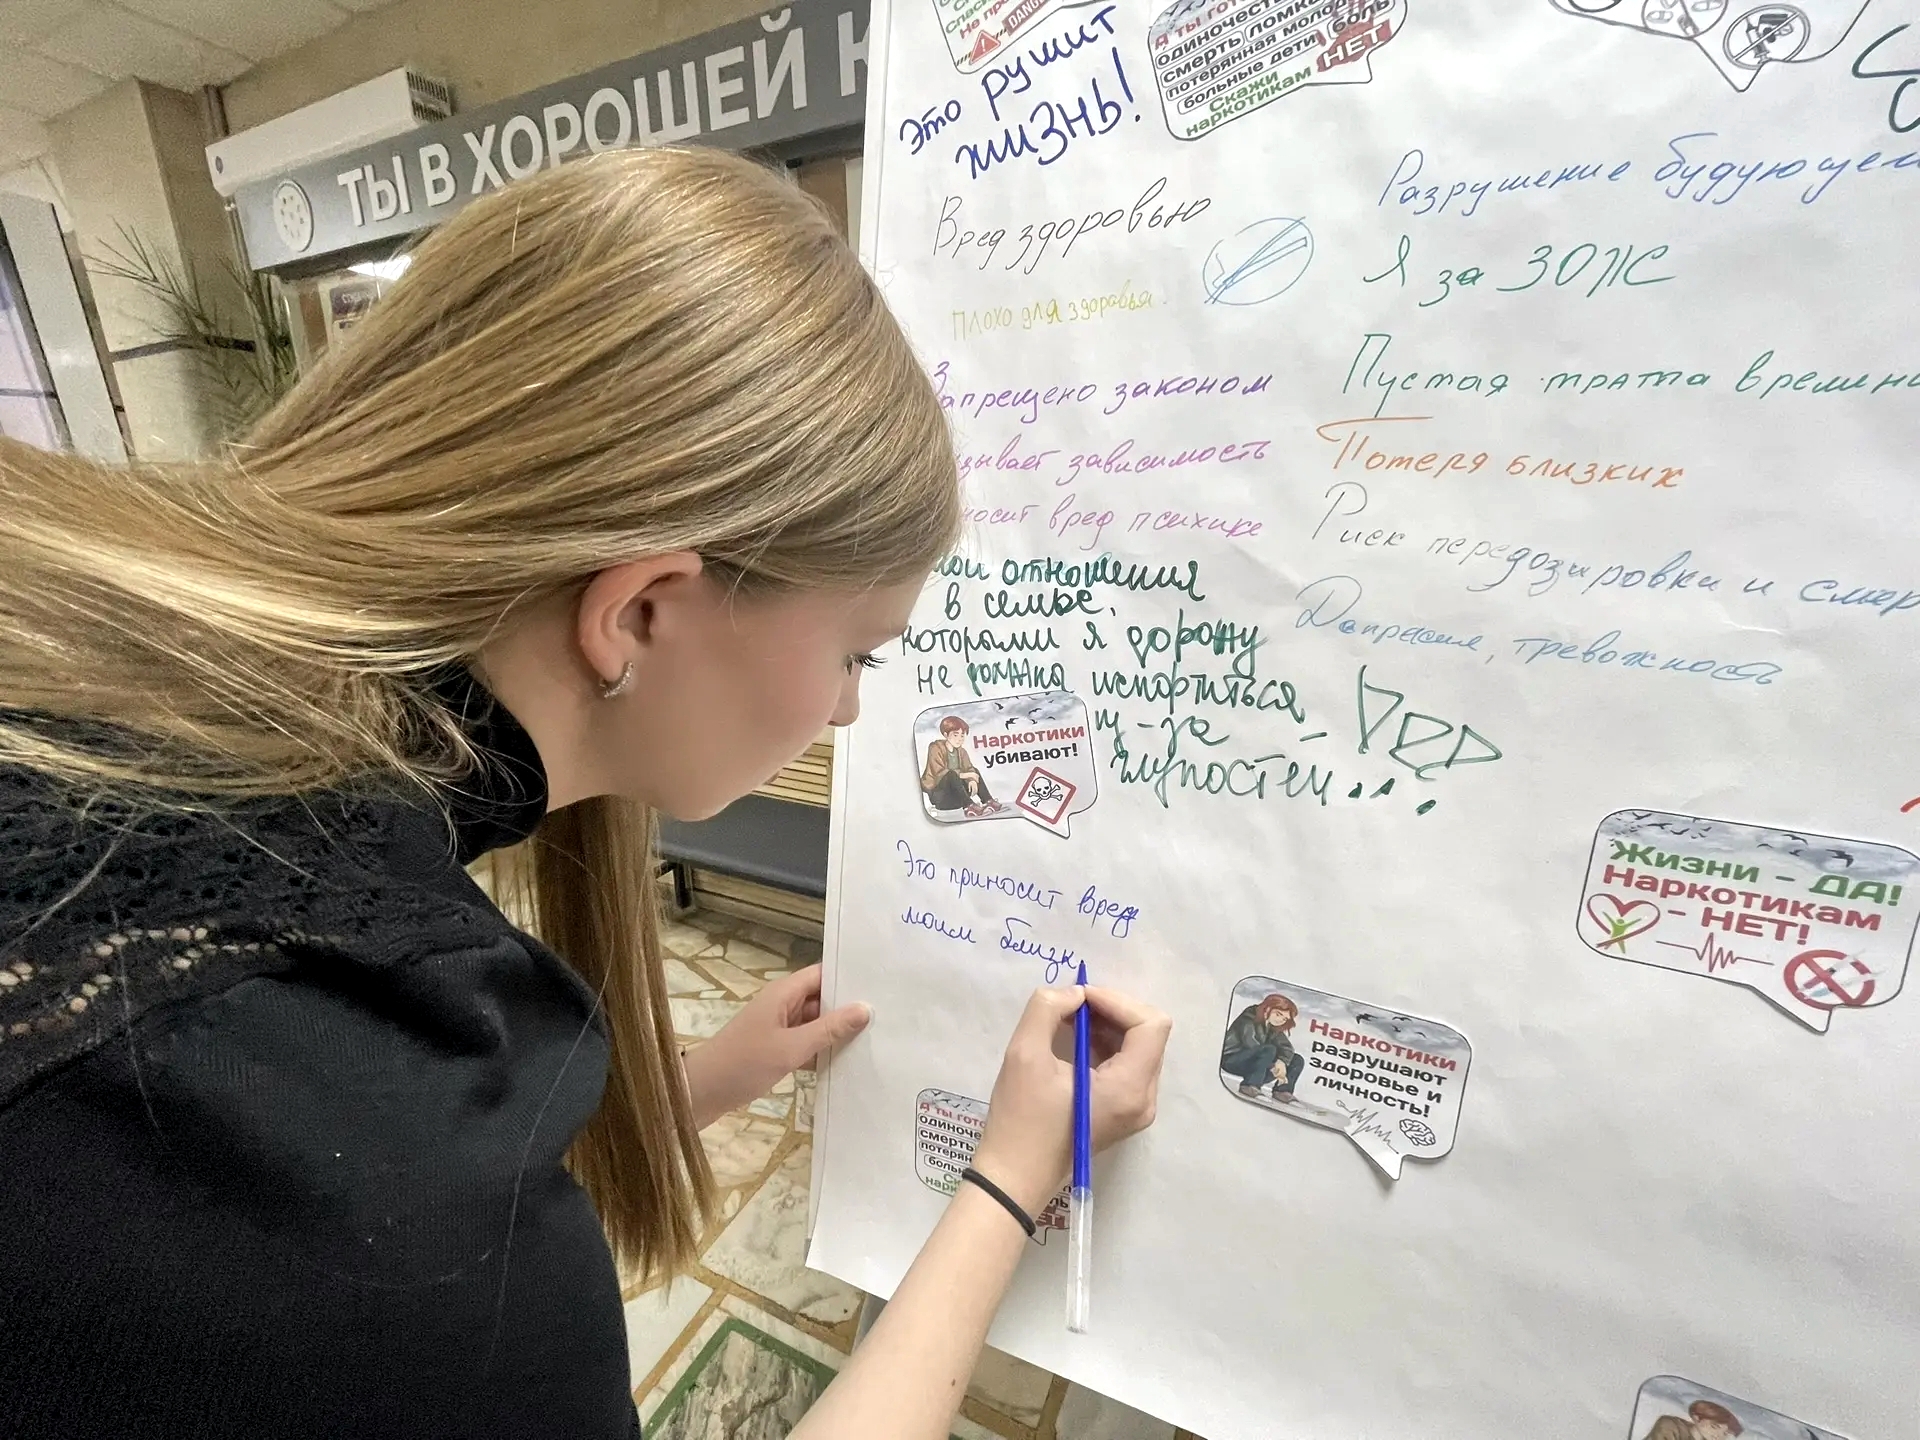 ТЫ В ХОРОШЕЙ К
Спаси
Не про
DANGE
Это рушит
жизнь!
А ты гото
одиночеств
смерть ломка
потерянная молодо
больные дети боль
Скажи НЕТ
наркотикам
Вред здоровью
Плохо для здоровья.
Запрещено законом
зывает зависимость
носит вред психике
мои отношения
в семье,
которыми я дорожу
не должна испортиться
из-за
глупостей...
Разрушение будующего
Я за ЗОЖ
Пустая трата времени
Потеря близких
Риск передозировки и смер
Депрессия, тревожность
Наркотики
убивают!
Это приносит вред
моим близк
Жизни - ДА!
Наркотикам
- НЕТ!
Наркотики
разрушают
здоровье и
личность!
А ты гото
одиноче
смерть
потерян
боль
Ск
нарк